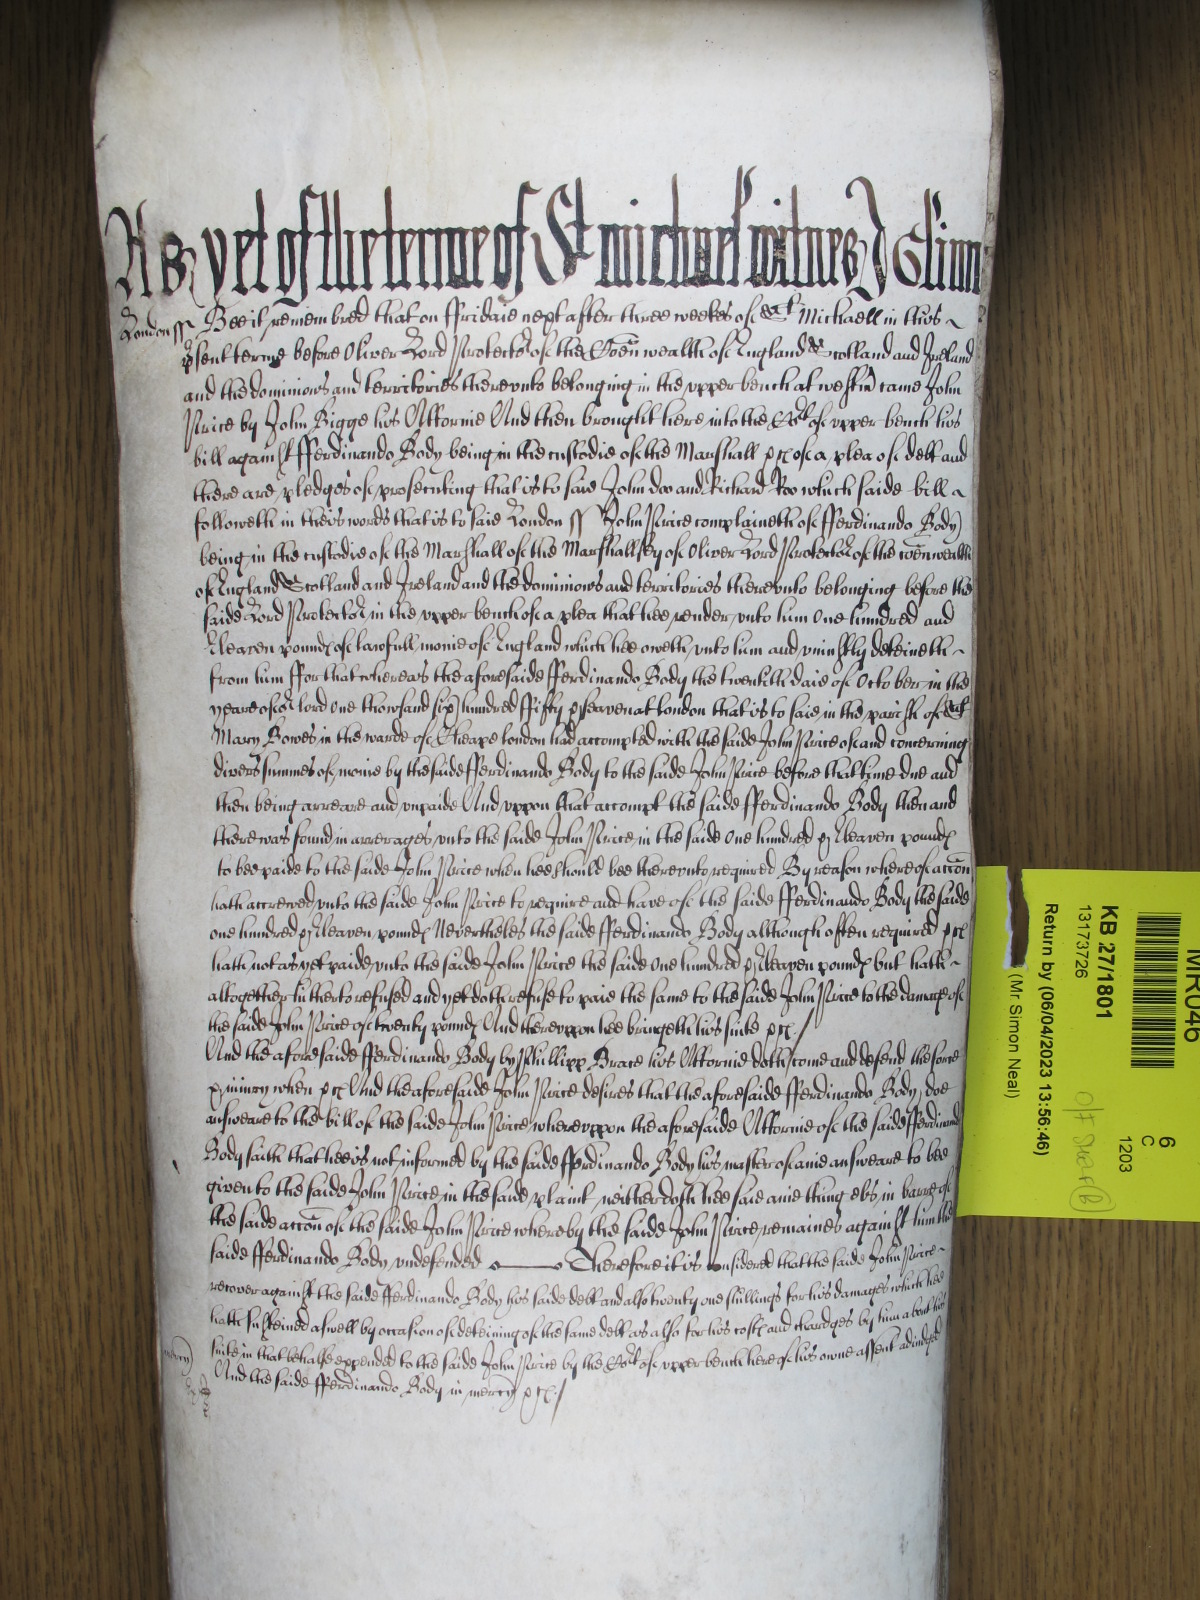 As yet of the terme of St michael witnes J Glinn
London ss Bee it remembred that on ffridaie next after three weekes of St Michaell in this
psent terme before Oliver Lord Protector of the Coen wealth of England Scotland and Ireland
and the dominions and territories therevnto belonging in the vpper bench at westm came John
Price by John Bigge his Attornie And then brought here into the Cort of vpper bench his
bill against fferdinando Body being in the custodie of the Marshall &c of a plea of debt and
there are pledges of prosecuting that is to saie John doo and Richard Roo which saide bill
followeth in theis words that is to saie London ss John Price complaineth of fferdinando Body
being in the custodie of the Marshall of the Marshallsey of Oliver Lord Protector of the coenwealth
of England Scotland and Ireland and the dominions and territories therevnto belonging before the
saide Lord Protector in the vpper bench of a plea that hee render vnto him One hundred and
Eleaven pounds of lawfull monie of England which hee oweth vnto him and vniustly deteineth
from him ffor that whereas the aforesaide fferdinando Body the twentith daie of October in the
yeare of or lord One thowsand six hundred ffifty & seaven at london that is to saie in the parish of St
Mary Bowes in the warde of Cheape london had accompted with the saide John Price of and concerning
divers summes of monie by the saide fferdinando Body to the saide John Price before that time due and
then being arreare and vnpaide And vppon that accompt the saide fferdinando Body then and
there was found in arrerages vnto the saide John Price in the saide One hundred & Eleaven pounds
to bee paide to the saide John Price when hee should bee therevnto required By reason whereof accon
hath accrewed vnto the saide John Price to require and have of the saide fferdinando Body the saide
one hundred & Eleaven pounds Neverthelesse the saide fferdinando Body although often required &c
hath not as yet paide vnto the saide John Price the saide One hundred & Eleaven pounds but hath
altogether hitherto refused and yet doth refuse to paie the same to the saide John Price to the damage of
the saide John Price of twenty pounds And therevpon hee bringeth his suite &c
And the aforesaide fferdinando Body by Phillipp Brace his Attornie doth come and defend the force
& iniury when &c And the aforesaide John Price desires that the aforesaide fferdinando Body doe
answeare to the bill of the saide John Price wherevppon the aforesaide Attornie of the saide fferdinand
Body saith that hee is not informed by the saide fferdinando Body his master of anie answeare to bee
given to the saide John Price in the saide plaint neither doth hee saie anie thing els in barre of
the saide accon of the saide John Price whereby the saide John Price remaines against him the
saide fferdinando Body vndefended Therefore it is considered that the saide John Price
recover against the saide fferdinando Body his saide debt and also twenty one shillings for his damages which hee
hath susteined aswell by occasion of deteining of the same debt as also for his costs and chardges by him about his
mercy suite in that behalfe expended to the saide John Price by the Cort of vpper bench here of his owne assent adiudged
And the saide fferdinando Body in mercy &c
MR046
6
C
1203
KB 27/1801
13173726
Return by (06/04/2023 13:56:46)
(Mr Simon Neal)